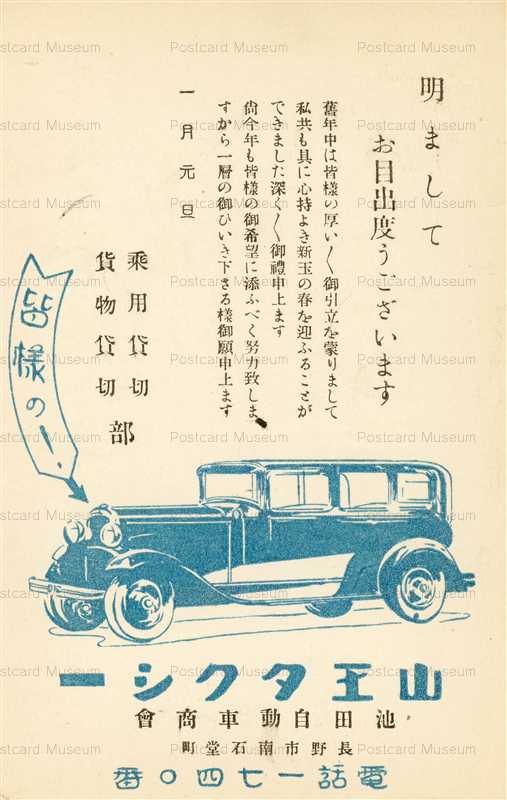 明まして
お目出度うございます
舊年中は皆様の厚い〱御引立を蒙りまして
私共も具に心持よき新玉の春を迎ふることが
できました深く〱御禮申上ます
尚今年も皆様の御希望に添ふべく努力致しま
すから一層の御ひいき下さる様御願申上ます
一月元旦
乘用貸切
貨物貸切
部
皆様の！
山王タクシー
池田自動車商會
長野市南石堂町
電話一七四〇番
Postcard Museum